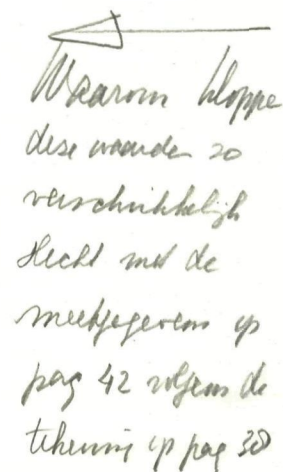 Waarom kloppe
deze waarden zo
verschrikkelijk
slecht met de
meetgegevens op
pag 42 volgens de
tekening op pag 38